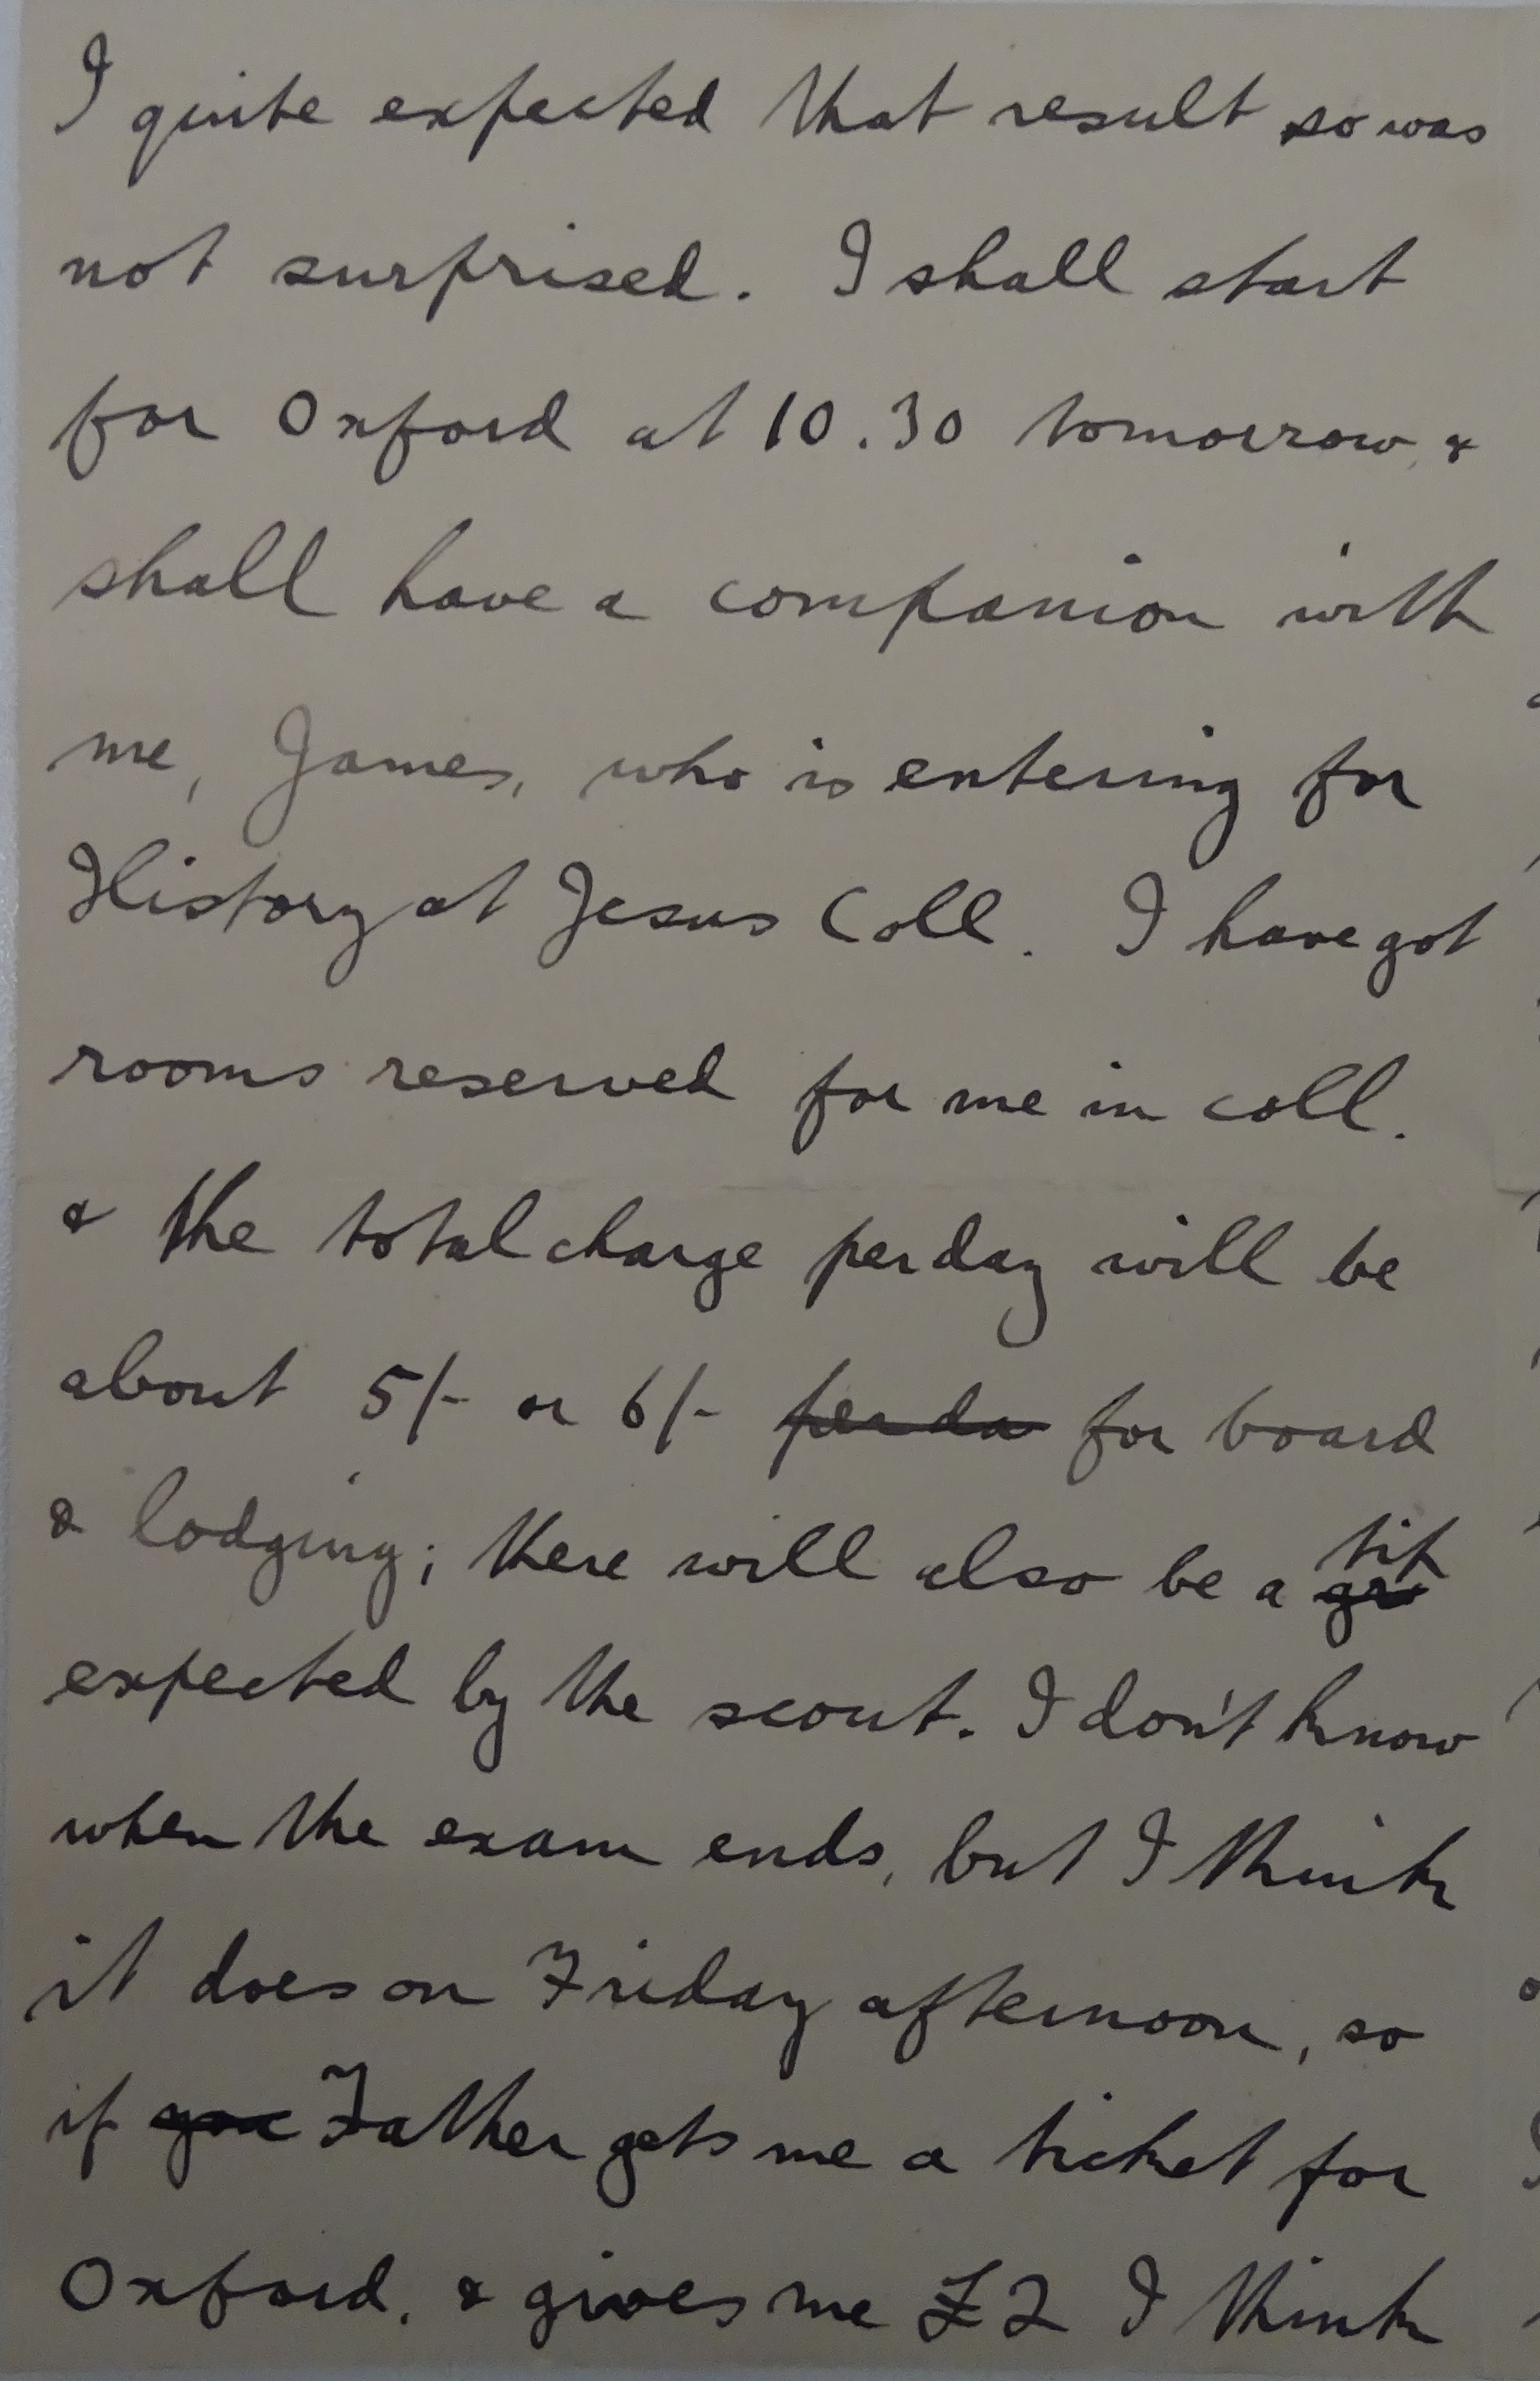 I quite expected that result so was
not surprised. I shall start
for Oxford at 10.30 tomorrow, &
shall have a companion with
me, James, who is entering for
History at Jesus Coll. I have got
rooms reserved for me in coll.
& the total charge per day will be
about 5/- or 6/- per da for board
& lodging; there will also be a gr tip
expected by the scout. I don't know
when the exam ends, but I think
it does on Friday afternoon, so
if you Father gets me a ticket for
Oxford, & gives me £2 I think